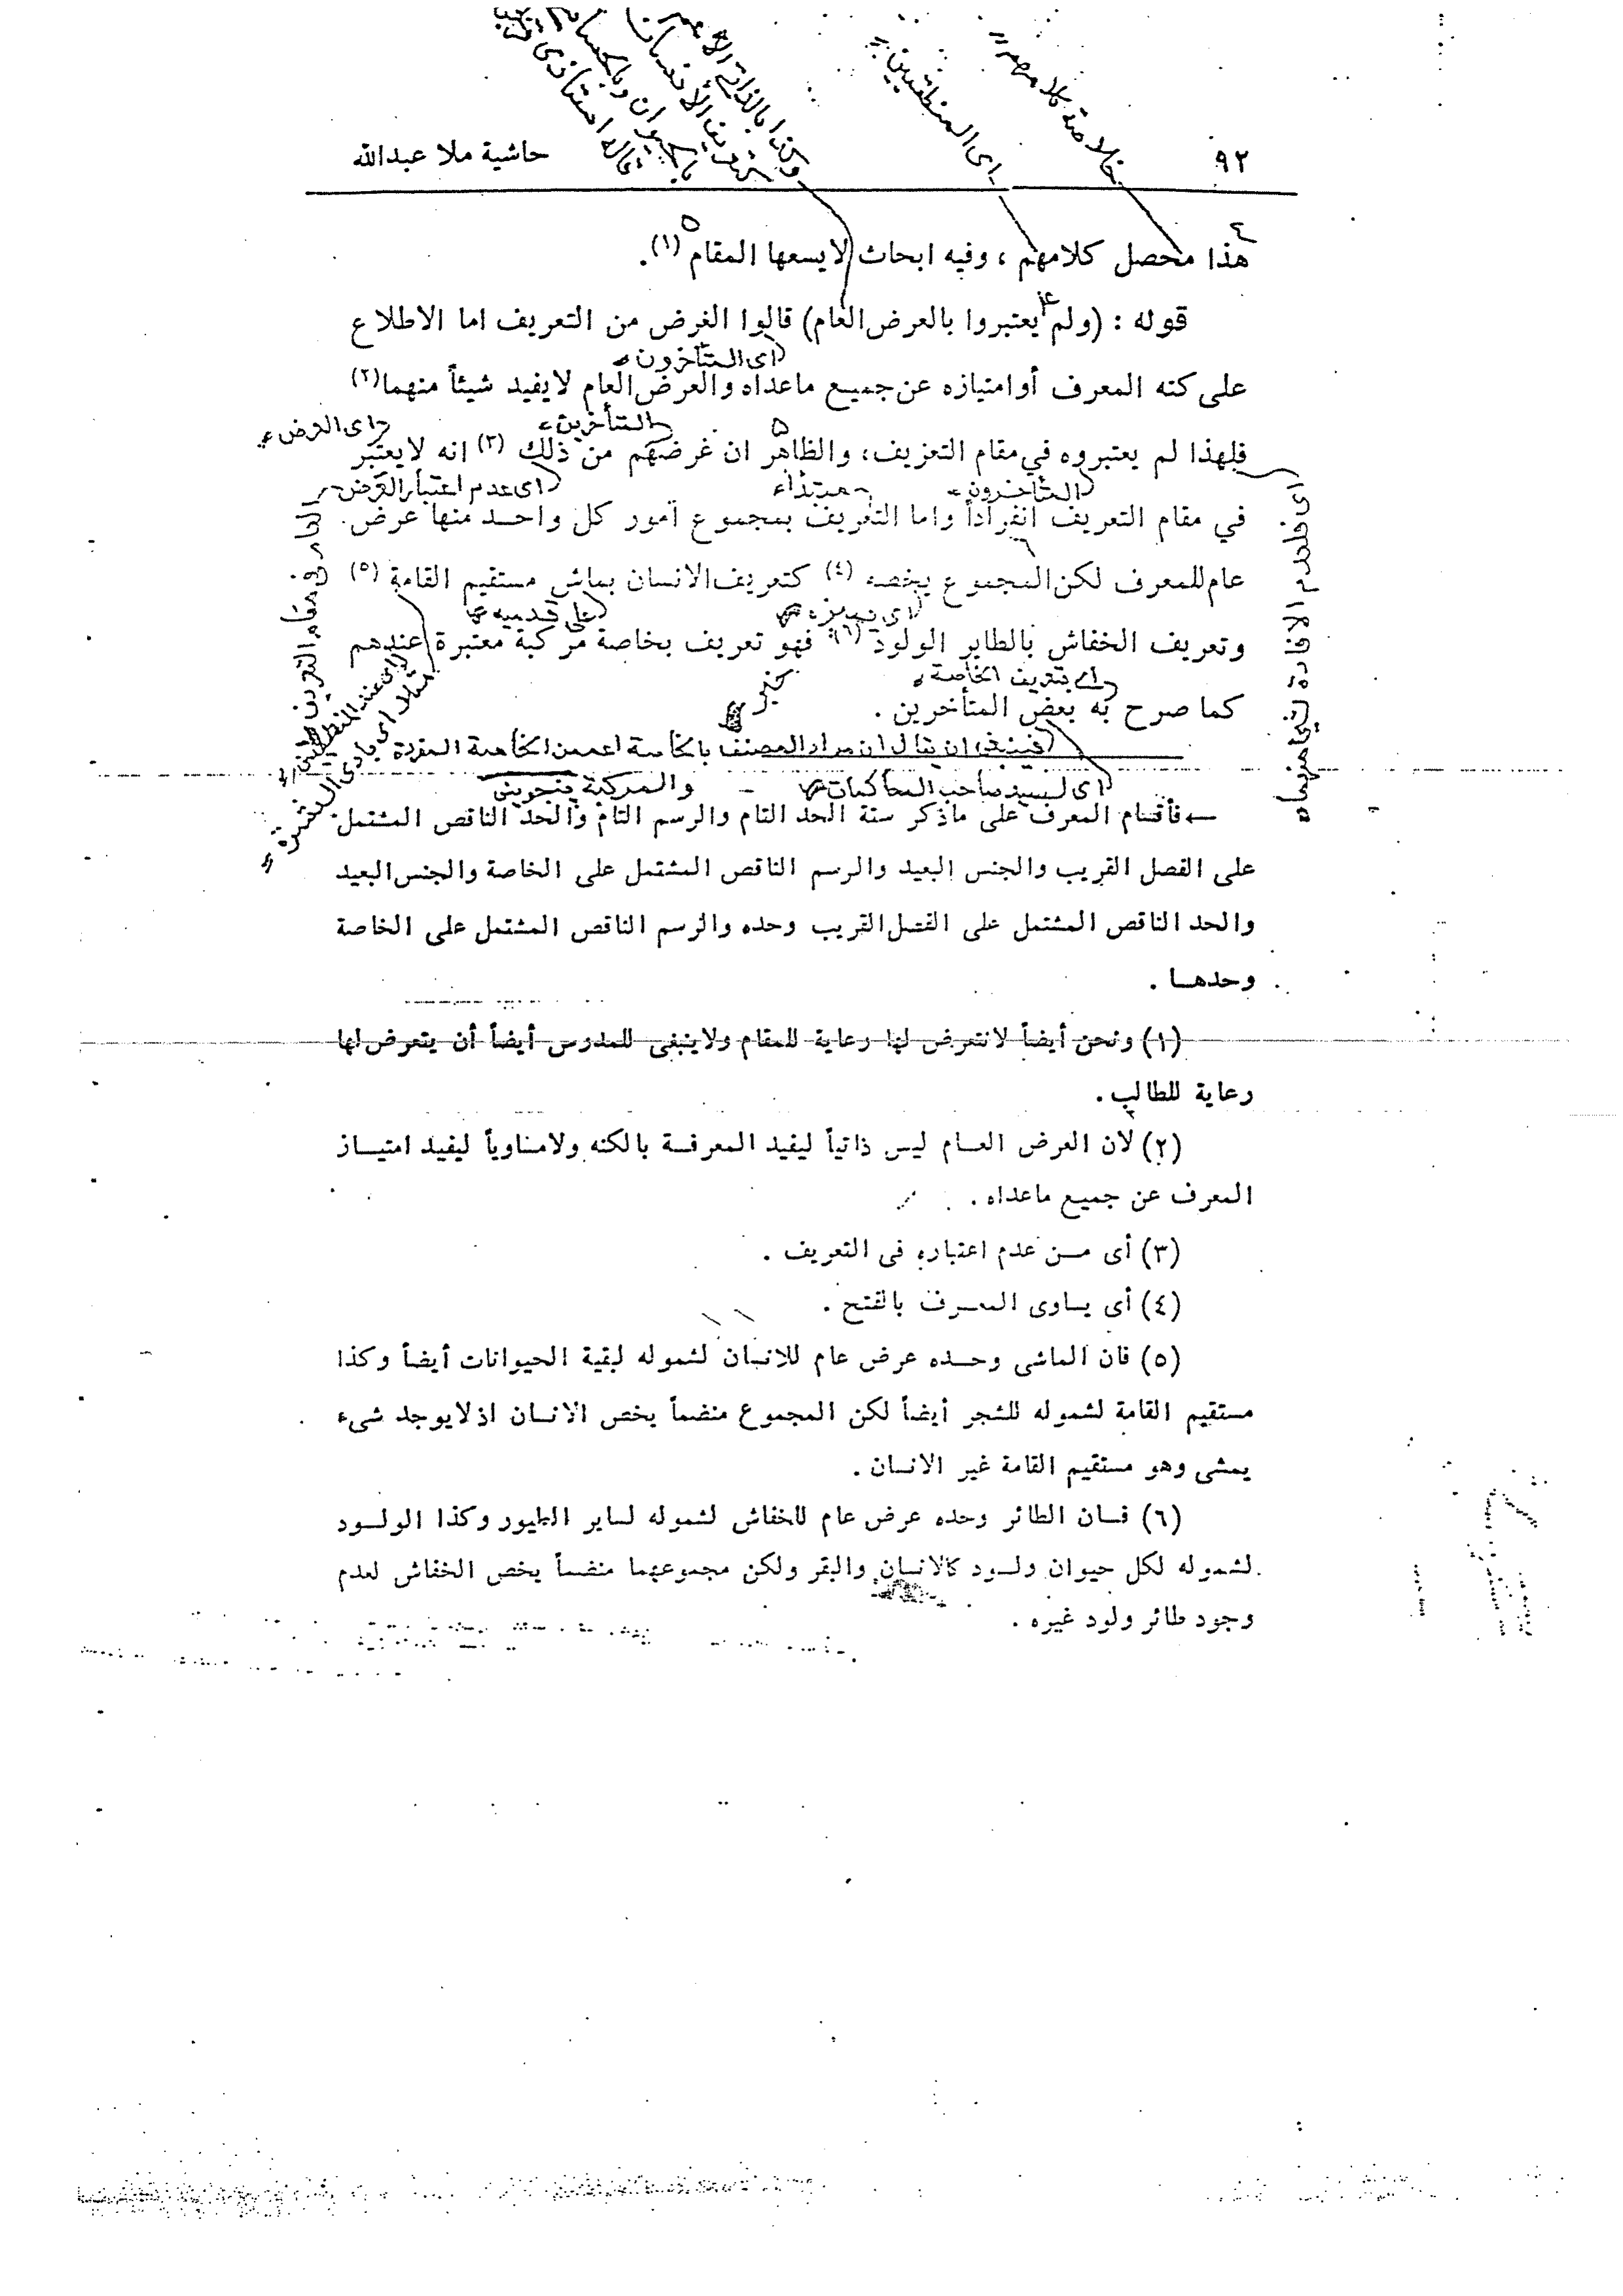 ٩٢
حاشية ملا عبدالله
خلاصة كلامهم
اى المنطقيين
هذا محصل كلامهم ، وفيه ابحاث لايسعها المقام (١) .
قوله : (ولم يعتبروا بالعرض العام) قالوا الغرض من التعريف اما الاطلاع
اى المتأخرون
على كنه المعرف أوامتيازه عن جميع ماعداه والعرض العام لايفيد شيئاً منهما (٢)
المتأخرين
اى العرض
فلهذا لم يعتبروه في مقام التعريف، والظاهر ان غرضهم من ذلك (٣) انه لايعتبر
المتأخرون
مبتداء
اى عدم اعتبار العرض
العام فى مقام التعريف
في مقام التعريف انفراداً واما التعريف بمجموع امور كل واحد منها عرض
عام للمعرف لكن المجموع يخصه (٤) كتعريف الانسان بماش مستقيم القامة (٥)
على قدميه
وتعريف الخفاش بالطاير الولود (٦) فهو تعريف بخاصة مركبة معتبرة عندهم
اى عند المنطقيين
اى بتعريف الخاصة
خبر
كما صرح به بعض المتأخرين .
فينبغى ان يقال ان مراد المصنف بالخاصة اعم من الخاصة المفردة
والمركبة
اى لسيد صاحب المحاكمات
←فأقسام المعرف على ماذكر ستة الحد التام والرسم التام والحد الناقص المشتمل
على الفصل القريب والجنس البعيد والرسم الناقص المشتمل على الخاصة والجنس البعيد
والحد الناقص المشتمل على الفصل القريب وحده والرسم الناقص المشتمل على الخاصة
وحدها .
(١) ونحن أيضاً لانتعرض لها رعاية للمقام ولاينبغى للمدرس أيضاً أن يتعرض لها
رعاية للطالب .
(٢) لان العرض العام ليس ذاتياً ليفيد المعرفة بالكنه ولامساوياً ليفيد امتياز
المعرف عن جميع ماعداه .
(٣) أى من عدم اعتباره فى التعريف .
(٤) أى يساوى المعرف بالفتح .
(٥) فان الماشى وحده عرض عام للانسان لشموله لبقية الحيوانات أيضاً وكذا
مستقيم القامة لشموله للشجر أيضاً لكن المجموع منضماً يختص الانسان اذلايوجد شىء
يمشى وهو مستقيم القامة غير الانسان .
(٦) فان الطائر وحده عرض عام للخفاش لشموله لساير الطيور وكذا الولود
لشموله لكل حيوان ولود كالانسان والبقر ولكن مجموعهما منضماً يخص الخفاش لعدم
وجود طائر ولود غيره .